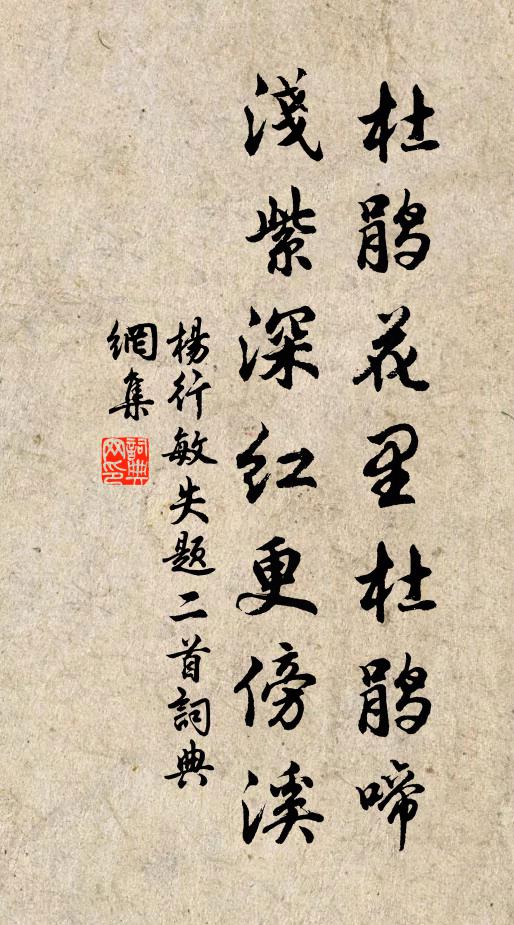 杜鹃花里杜鹃啼
淺紫深红更傍溪
楊行敏失题二首詞典
網集
詞典網印